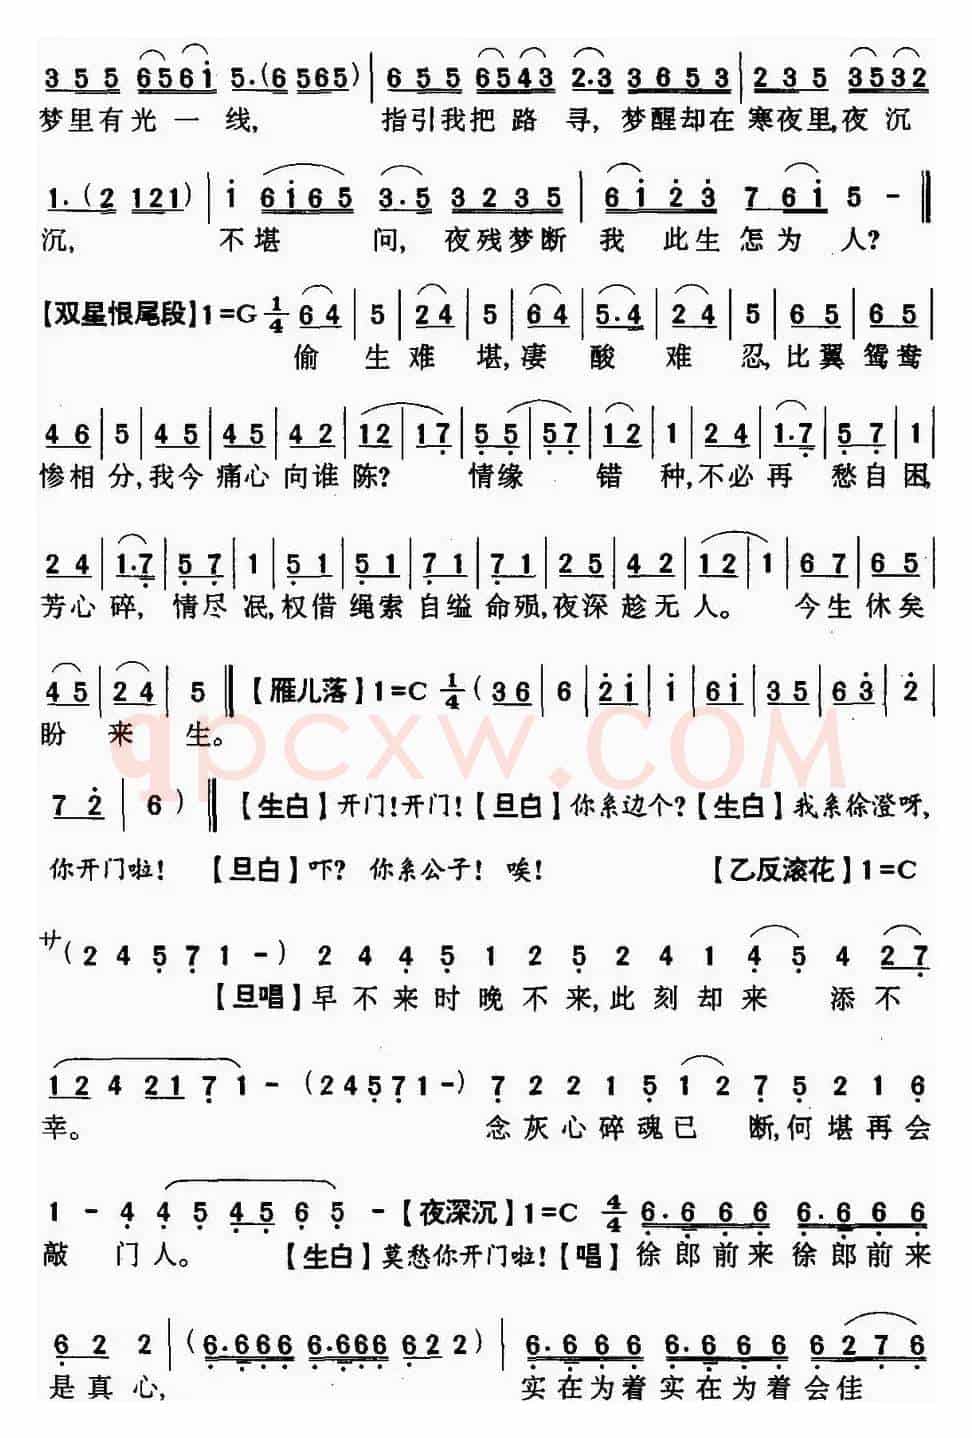 3 5 5 6 5 6 i 5.(6 5 6 5) | 6 5 5 6 5 4 3 2.3 3 6 5 3 | 2 3 5 3 5 3 2
梦里有光一线, 指引我把路寻,梦醒却在寒夜里,夜沉
1.(2 1 2 1) | i 6 i 6 5 3.5 3 2 3 5 | 6 i 2 3 7 6 i 5 - ‖
沉, 不堪问,夜残梦断我此生怎为人?
【双星恨尾段】1=G 1/4 6 4 | 5 | 2 4 | 5 | 6 4 | 5.4 | 2 4 | 5 | 6 5 | 6 5 |
偷生难堪,凄酸难忍,比翼鸳鸯
4 6 | 5 | 4 5 | 4 5 | 4 2 | 1 2 | 1 7 | 5 5 | 5 7 | 1 2 | 1 | 2 4 | 1.7 | 5 7 | 1
惨相分,我今痛心向谁陈?情缘错种,不必再愁自困,
2 4 | 1.7 | 5 7 | 1 | 5 1 | 5 1 | 7 1 | 7 1 | 2 5 | 4 2 | 1 2 | 1 | 6 7 | 6 5 |
芳心碎,情尽泯,权借绳索自缢命殒,夜深趁无人。今生休矣
4 5 | 2 4 | 5 ‖ 【雁儿落】1=C 1/4 (3 6 | 6 | 2 i | i | 6 i | 3 5 | 6 3 | 2
盼来生。
qpcxw.COM
7 2 | 6 ) ‖ 【生白】开门!开门!【旦白】你系边个?【生白】我系徐澄呀,
你开门啦! 【旦白】吓?你系公子!唉! 【乙反滚花】1=C
サ(2 4 5 7 1 -) 2 4 4 5 1 2 5 2 4 1 4 5 4 2 7
【旦唱】早不来时晚不来,此刻却来添不
1 2 4 2 1 7 1 - (2 4 5 7 1 -) 7 2 2 1 5 1 2 7 5 2 1 6
幸。 念灰心碎魂已断,何堪再会
1 - 4 4 5 4 5 6 5 - 【夜深沉】1=C 4/4 6.6 6 6 6.6 6 6
敲门人。 【生白】莫愁你开门啦!【唱】徐郎前来徐郎前来
6 2 2 | (6.6 6 6 6.6 6 6 6 2 2) | 6.6 6 6 6.6 6 6 6 2 7 6
是真心, 实在为着实在为着会佳